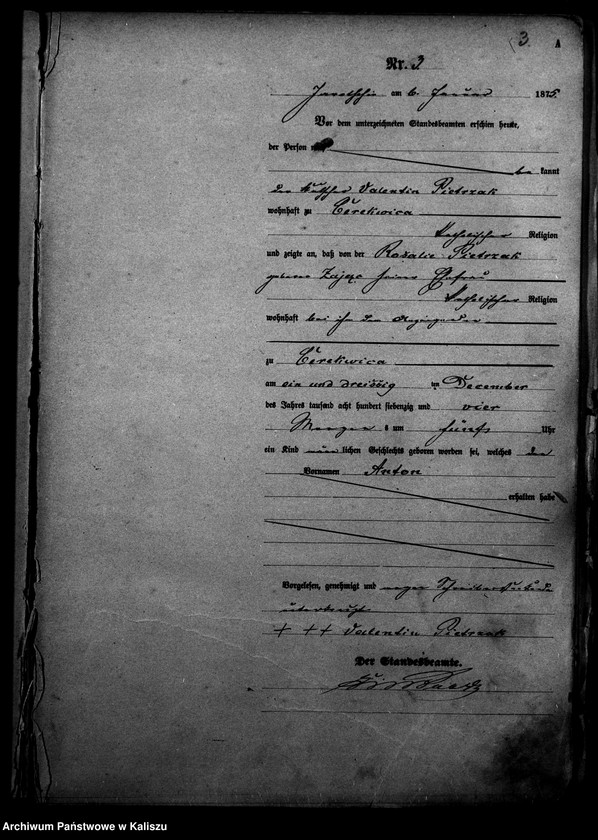 3.
A
Nr. 3
am 6. Januar 1875.
Vor dem unterzeichneten Standesbeamten erschien heute,
der Person
kannt
der Kutscher Valentin Pietrzak
wohnhaft zu Cerekwica
katholischer Religion
und zeigte an, daß von der Rosalie Pietrzak
geborene Zając seiner Ehefrau
katholischer Religion
wohnhaft bei ihm
zu Cerekwica
am ein und dreißig ten December
des Jahres tausend acht hundert siebenzig und vier
Morgens um fünf Uhr
ein Kind männlichen Geschlechts geboren worden sei, welches den
Vornamen Anton
erhalten habe
Vorgelesen, genehmigt und wegen
unterkreuzt
+ ++ Valentin Pietrzak
Der Standesbeamte.
Archiwum Państwowe w Kaliszu